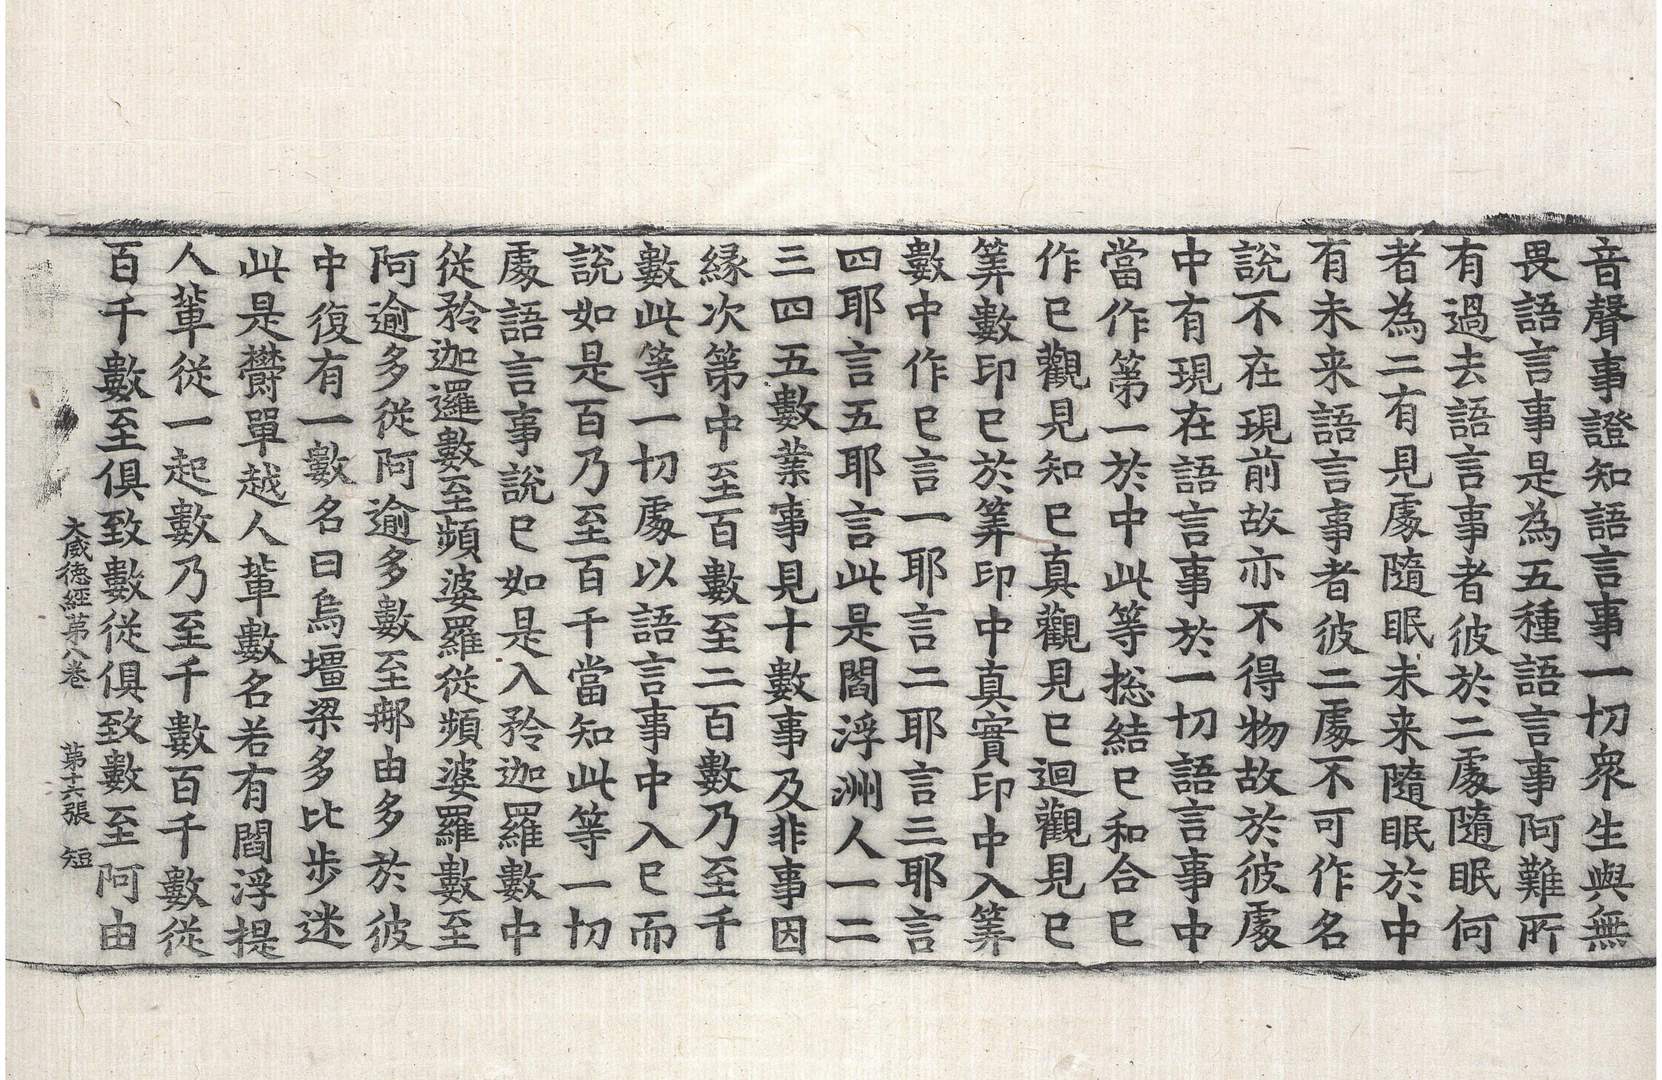 音聲事證知語言事一切衆生與無
畏語言事是為五種語言事阿難所
有過去語言事者彼於二處隨眠何
者為二有見處隨眠未来隨眠於中
有未来語言事者彼二處不可作名
說不在現前故亦不得物故於彼處
中有現在語言事於一切語言事中
當作第一於中此等揔結已和合已
作已觀見知已真觀見已迴觀見已
筭數印已於筭印中真實印中入筭
數中作已言一耶言二耶言三耶言
四耶言五耶言此是閻浮洲人一二
三四五數業事見十數事及非事因
緣次第中至百數至二百數乃至千
數此等一切處以語言事中入已而
說如是百乃至百千當知此等一切
處語言事說已如是入矜迦羅數中
從矜迦邏數至頻婆羅從頻婆羅數至
阿逾多從阿逾多數至郍由多於彼
中復有一數名曰烏壃梁多比步迷
此是欝單越人輩數名若有閻浮提
人輩從一起數乃至千數百千數從
百千數至俱致數從俱致數至阿由
大威徳經第八卷　第十六張　短